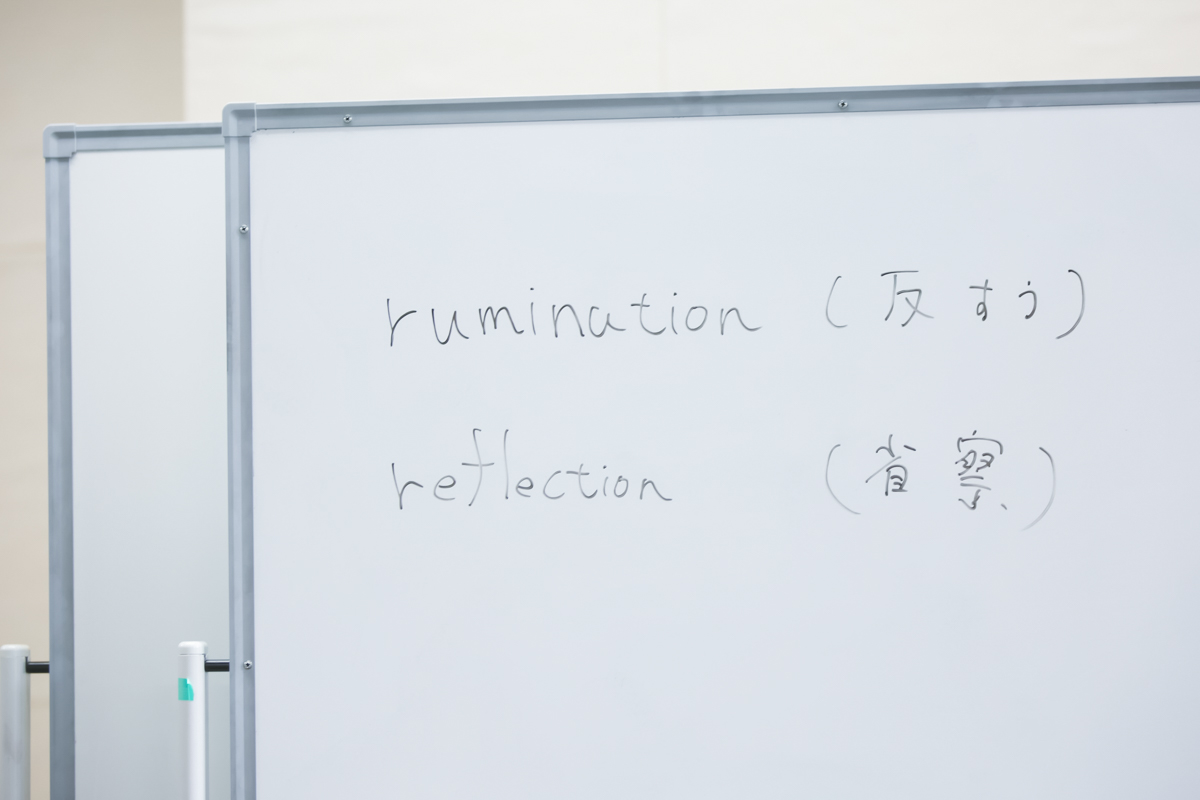 rumination (反すう)
reflection (省察)